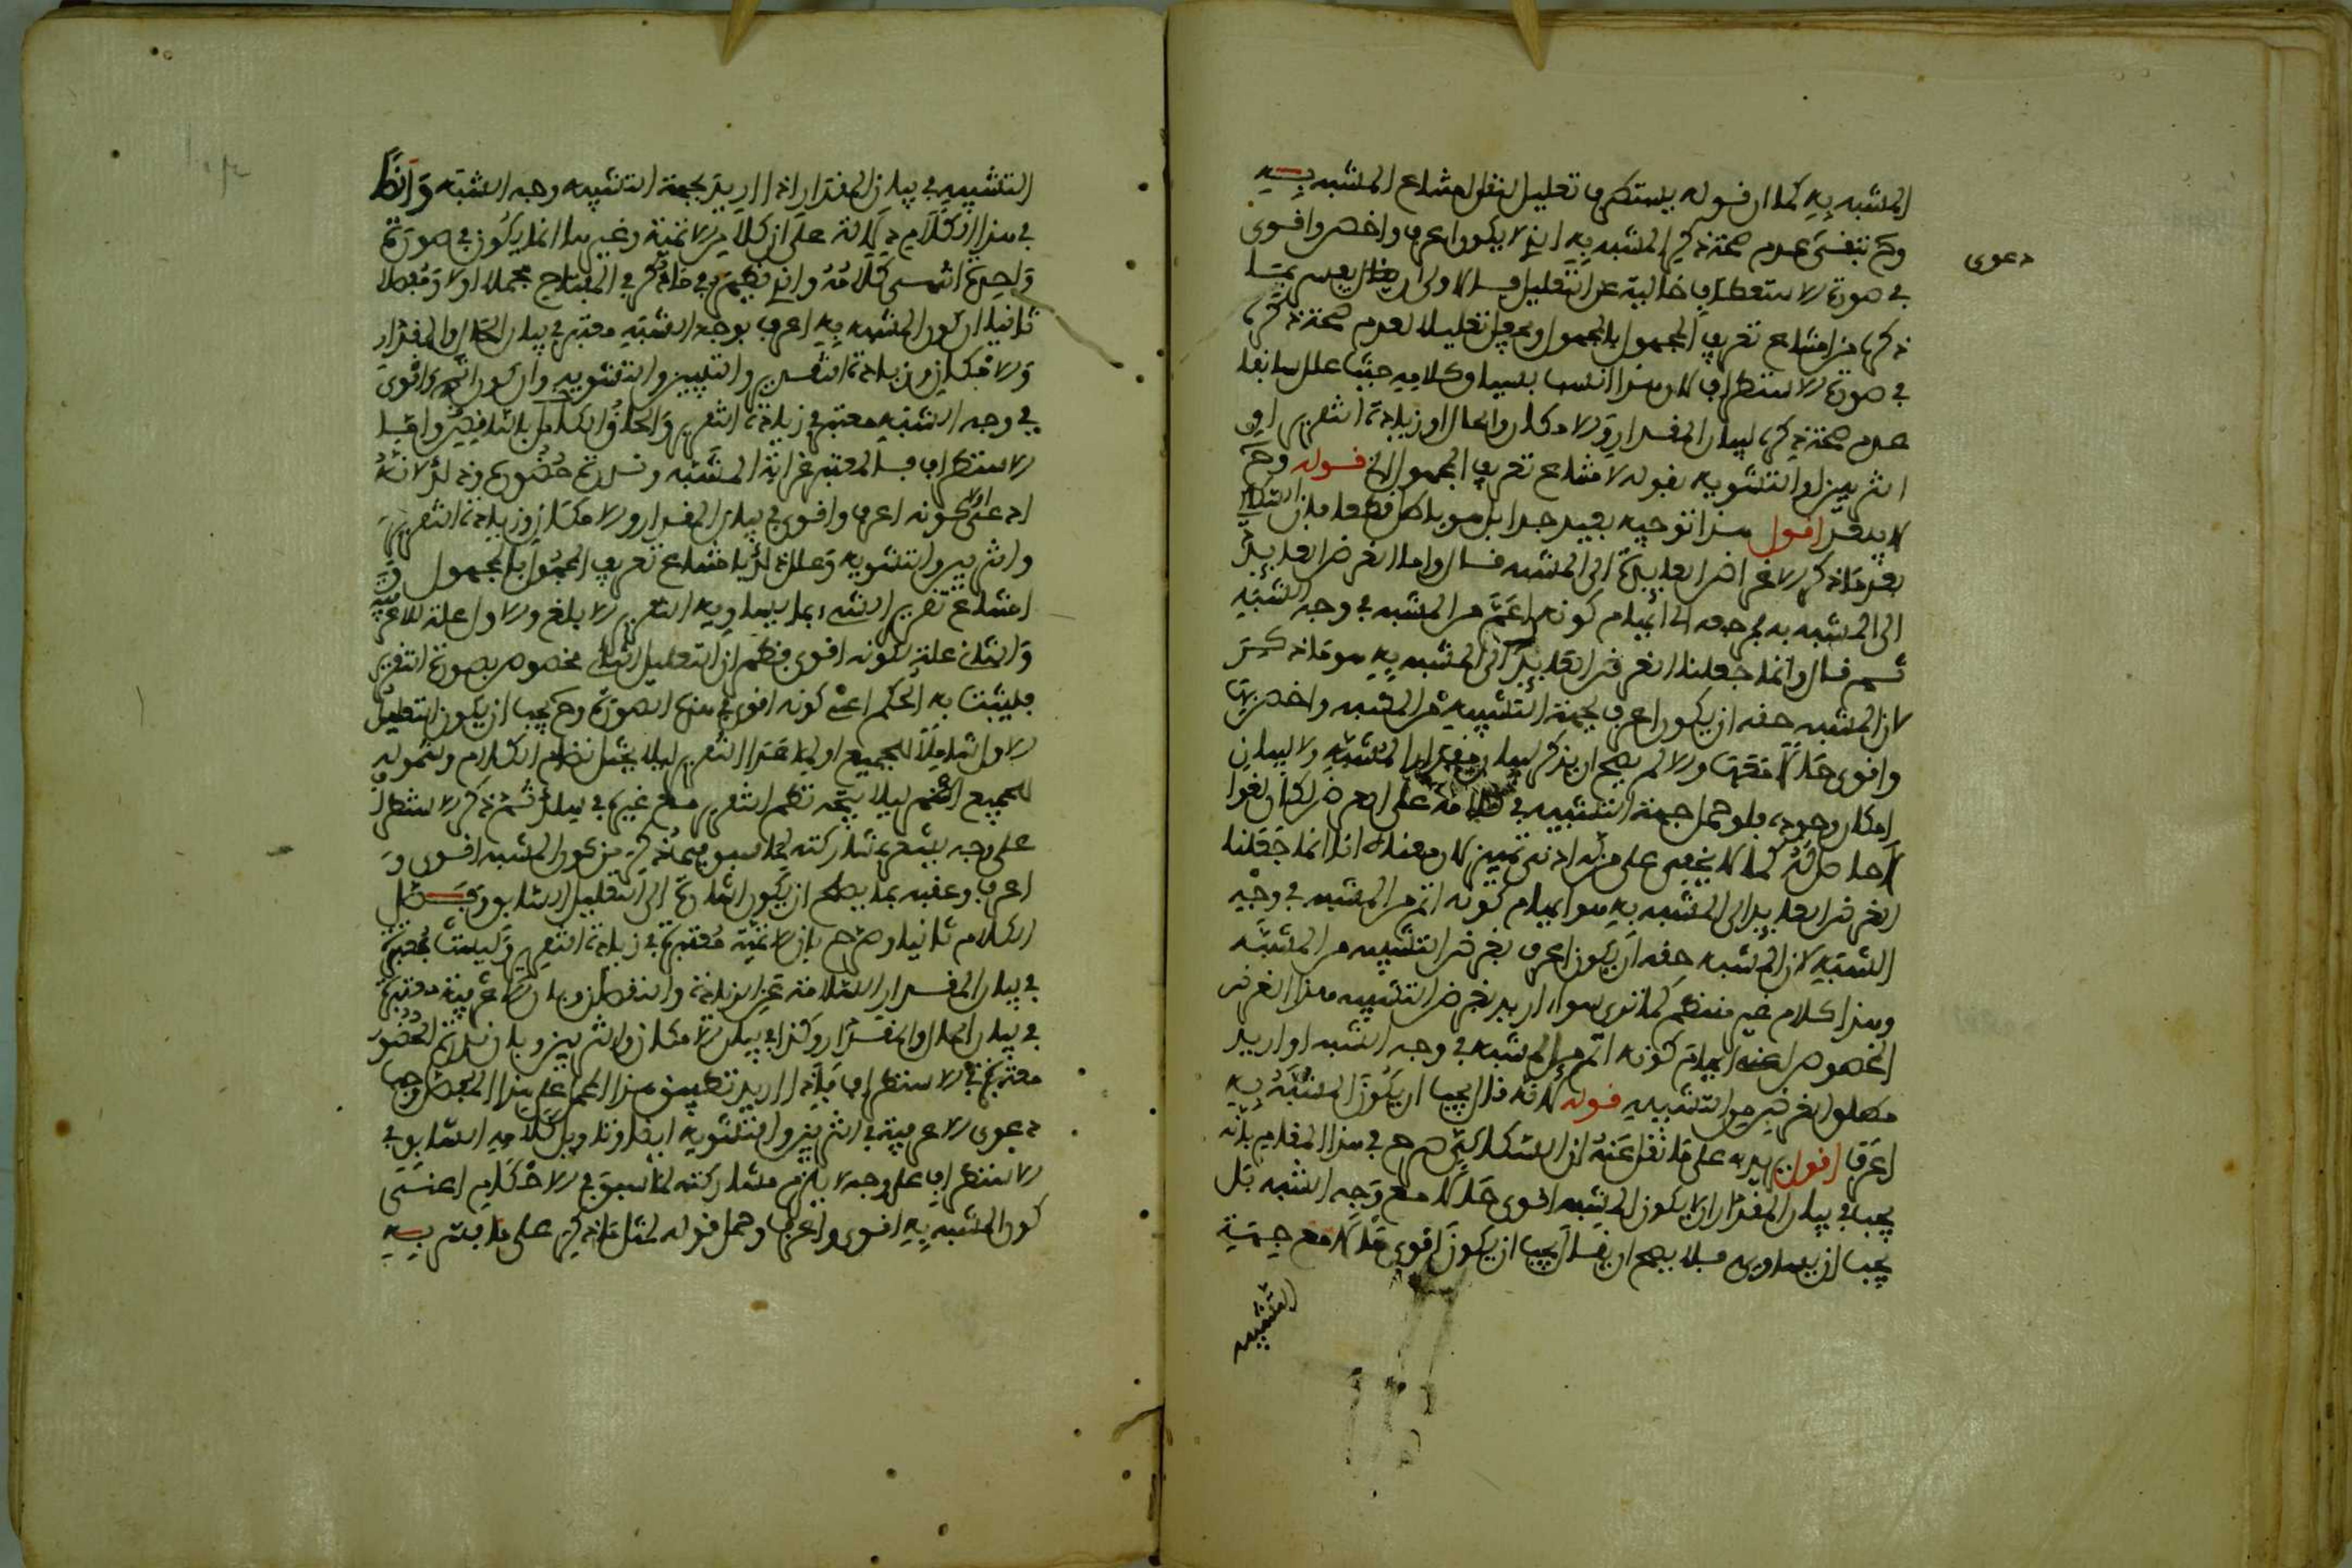 المشبه به كما ان قوله يستطرف تعليل لنقل امتناع المشبه به
وح تبقى عدم صحة ذكر المشبه به الذى لا يكون اعرف واخص واقوى
دعوى
في صورة الاستطراف خالية عن التعليل فالاولى ان يجعل
ذكره من امتناع تعريف المجهول بالمجهول تعليلا لعدم صحة ذكره
في صورة الاستطراف لان هذا انسب بسياق كلامه حيث علل سابقا
عدم صحة ذكره لبيان المقدار والامكان والحال او زيادة التقرير او
التزيين او التشويه بقوله لامتناع تعريف المجهول الخ قوله وح
لا بد من اقول هذا توجيه بعيد جدا بل هو باطل قطعا فان
بعد ما ذكر الاغراض العايدة الى المشبه قال واما الغرض العايد
الى المشبه به فمرجعه الى ايهام كونه اتم من المشبه في وجه التشبيه
ثم قال وانما جعلنا الغرض العايد الى المشبه به هو ما ذكر
لان المشبه به حقه ان يكون اعرف بجهة التشبيه من المشبه واخص بها
واقوى حالا معها والا لم يصح ان يذكر لبيان مقدار المشبه ولا لبيان
امكان وجوده فلو حمل جهة التشبيه في كلامه على الغرض لكان لغوا
لا حاصل له كما لا يخفى على من له ادنى تمييز لان معناه انا انما جعلنا
الغرض العايد الى المشبه به هو ايهام كونه اتم من المشبه في وجه
التشبيه لان المشبه به حقه ان يكون اعرف بغرض التشبيه من المشبه
وهذا كلام غير منتظم كما ترى سواء اريد بغرض التشبيه هذا الغرض
المخصوص اعنى ايهام كونه اتم من المشبه في وجه الشبه او اريد
مطلق الغرض من التشبيه قوله لانه قال يجب ان يكون المشبه به
اعرف اقول يرد على ما نقل عنه ان السكاكى صرح في هذا المقام بانه
يجب في بيان المقدار ان لا يكون المشبه به اقوى حالا مع وجه الشبه بل
يجب ان يساويه فلا يصح ان يقال يجب ان يكون اقوى حالا مع جهة
التشبيه
التشبيه في بيان المقدار اذا اريد بجهة التشبيه وجه الشبه وايضا
في هذا الكلام دلالة على ان كلا من الاتمية وغيرها انما يكون في صورة
واحدة انتهى كلامه والذى يظهر في ما ذكر في المفتاح مجملا اولا ومفصلا
ثانيا ان كون المشبه به اعرف بوجه الشبه معتبر في بيان الحال والمقدار
والامكان وزيادة التقرير والتزيين والتشويه وان كونه اتم واقوى
في وجه الشبه معتبر في زيادة التقرير والحاق الناقص بالكامل واما
الاستطراف فالمعتبر غرابة المشبه به وندرة حضوره وذلك لانه
ادعى اولا كونه اعرف واقوى في بيان المقدار والامكان وزيادة التقرير
والتزيين والتشويه وعلل ذلك بامتناع تعريف المجهول بالمجهول و
امتناع تقرير الشيء بما يساويه التقرير الابلغ والاول علة للاعرفية
والثانى علة لكونه اقوى فظهر ان التعليل الثانى مخصوص بصورة التقرير
فليثبت به الحكم اعنى كونه اقوى في هذه الصورة وح يجب ان يكون التعليل
الاول شاملا للجميع او لما عدا التقرير ليلا يختل نظام الكلام وشموله
للجميع اظهر ليلا يتجه نظم التقرير مع غيره في سلك ثم ذكر الاستطراف
على وجه يشعر بمشاركته لما سبق فيما ذكر من كون المشبه به اقوى و
اعرف وعقبه بما يصلح ان يكون اشارة الى التعليل السابق وفصل
الكلام ثانيا وصرح بان الاتمية معتبرة في زيادة التقرير وليست معتبرة
في بيان المقدار السلامة عن الزيادة والنقصان وبان الاعرفية معتبرة
في بيان الحال والمقدار وكذا في بيان الامكان والتزيين وبان ندرة الحضور
معتبرة في الاستطراف فاذا اريد تطبيق هذا المجمل على هذا المفصل وجب
دعوى الاعرفية في التزيين والتشويه ايضا وتاويل كلامه السابق في
الاستطراف على وجه لا يلزم مشاركته لما سبق في الاحكام اعنى
كون المشبه به اقوى واعرف وحمل قوله لمثل ما ذكر على ما يتم به